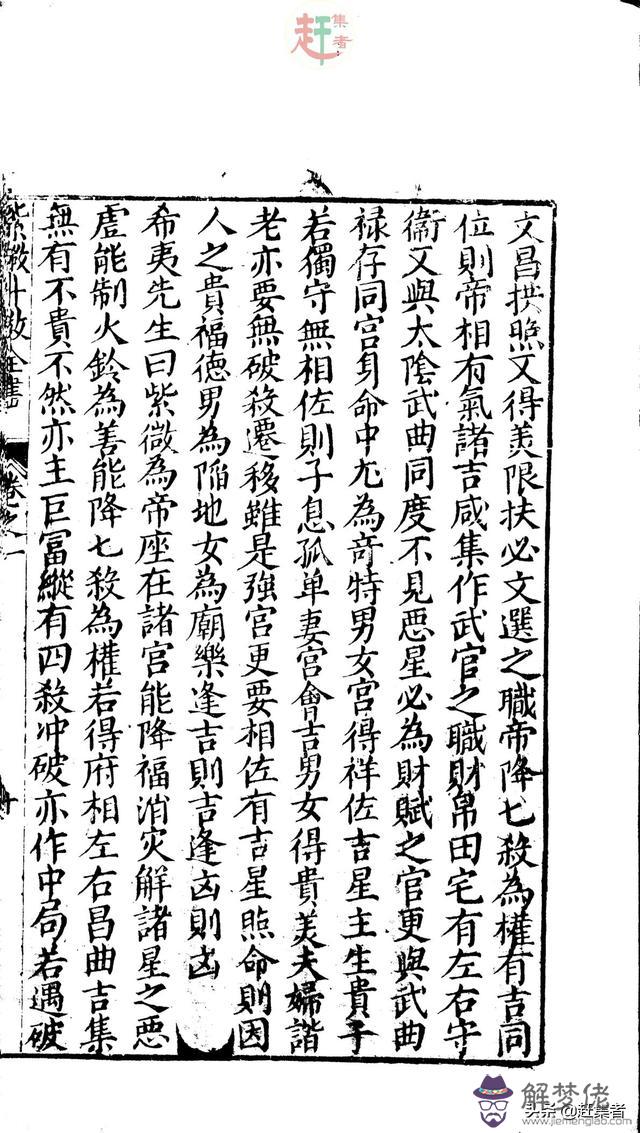 赶集者
文昌拱照又得美限扶必文選之職帝降七殺為權有吉同
位則帝相有氣諸吉咸集作武官之職財帛田宅有左右守
衞又與太陰武曲同度不見惡星必為財賦之官更與武曲
禄存同宮身命中尤為奇特男女宮得祥佐吉星主生貴子
若獨守無相佐則子息孤单妻宮會吉男女得貴美夫婦諧
老亦要無破殺遷移雖是強宮更要相佐有吉星照命則因
人之貴福德男為陷地女為廟樂逢吉則吉逢凶則凶
希夷先生曰紫微為帝座在諸宮能降福消灾解諸星之惡
虗能制火鈴為善能降七殺為權若得府相左右昌曲吉集
無有不貴不然亦主巨冨縱有四殺冲破亦作中局若遇破
卷之一
解梦佬
www.jiemenglao.com
头条 @赶集者